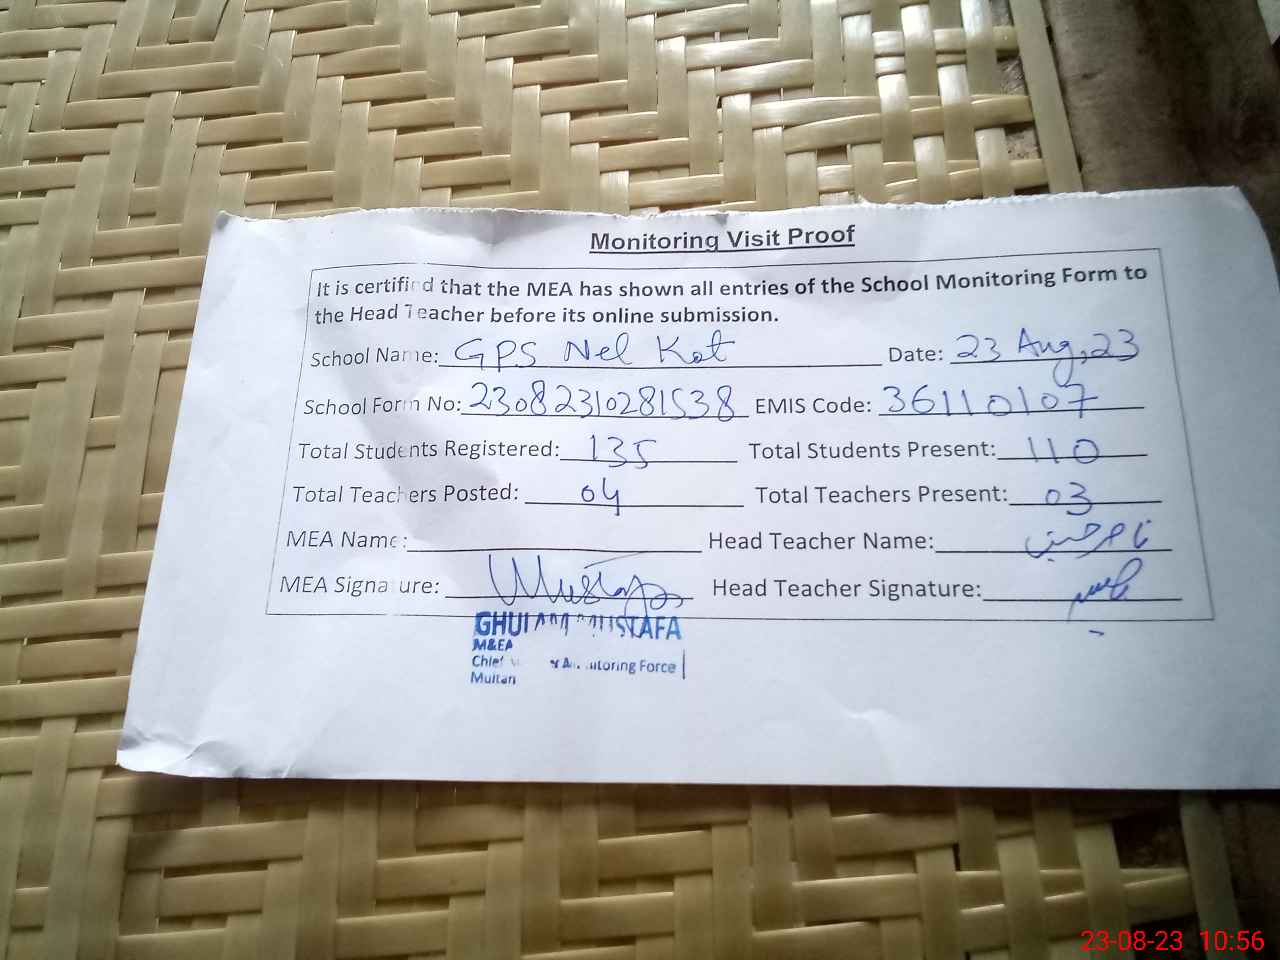 Monitoring Visit Proof
It is certified that the MEA has shown all entries of the School Monitoring Form to
the Head Teacher before its online submission.
School Name: GPS Nel Kot Date: 23 Aug, 23
School Form No: 23082310281538 EMIS Code: 36110107
Total Students Registered: 135 Total Students Present: 110
Total Teachers Posted: 04 Total Teachers Present: 03
MEA Name: Head Teacher Name:
MEA Signature: Mustafa Head Teacher Signature:
GHULAM MUSTAFA
M&EA
Chief Monitoring Force
Multan
23-08-23 10:56